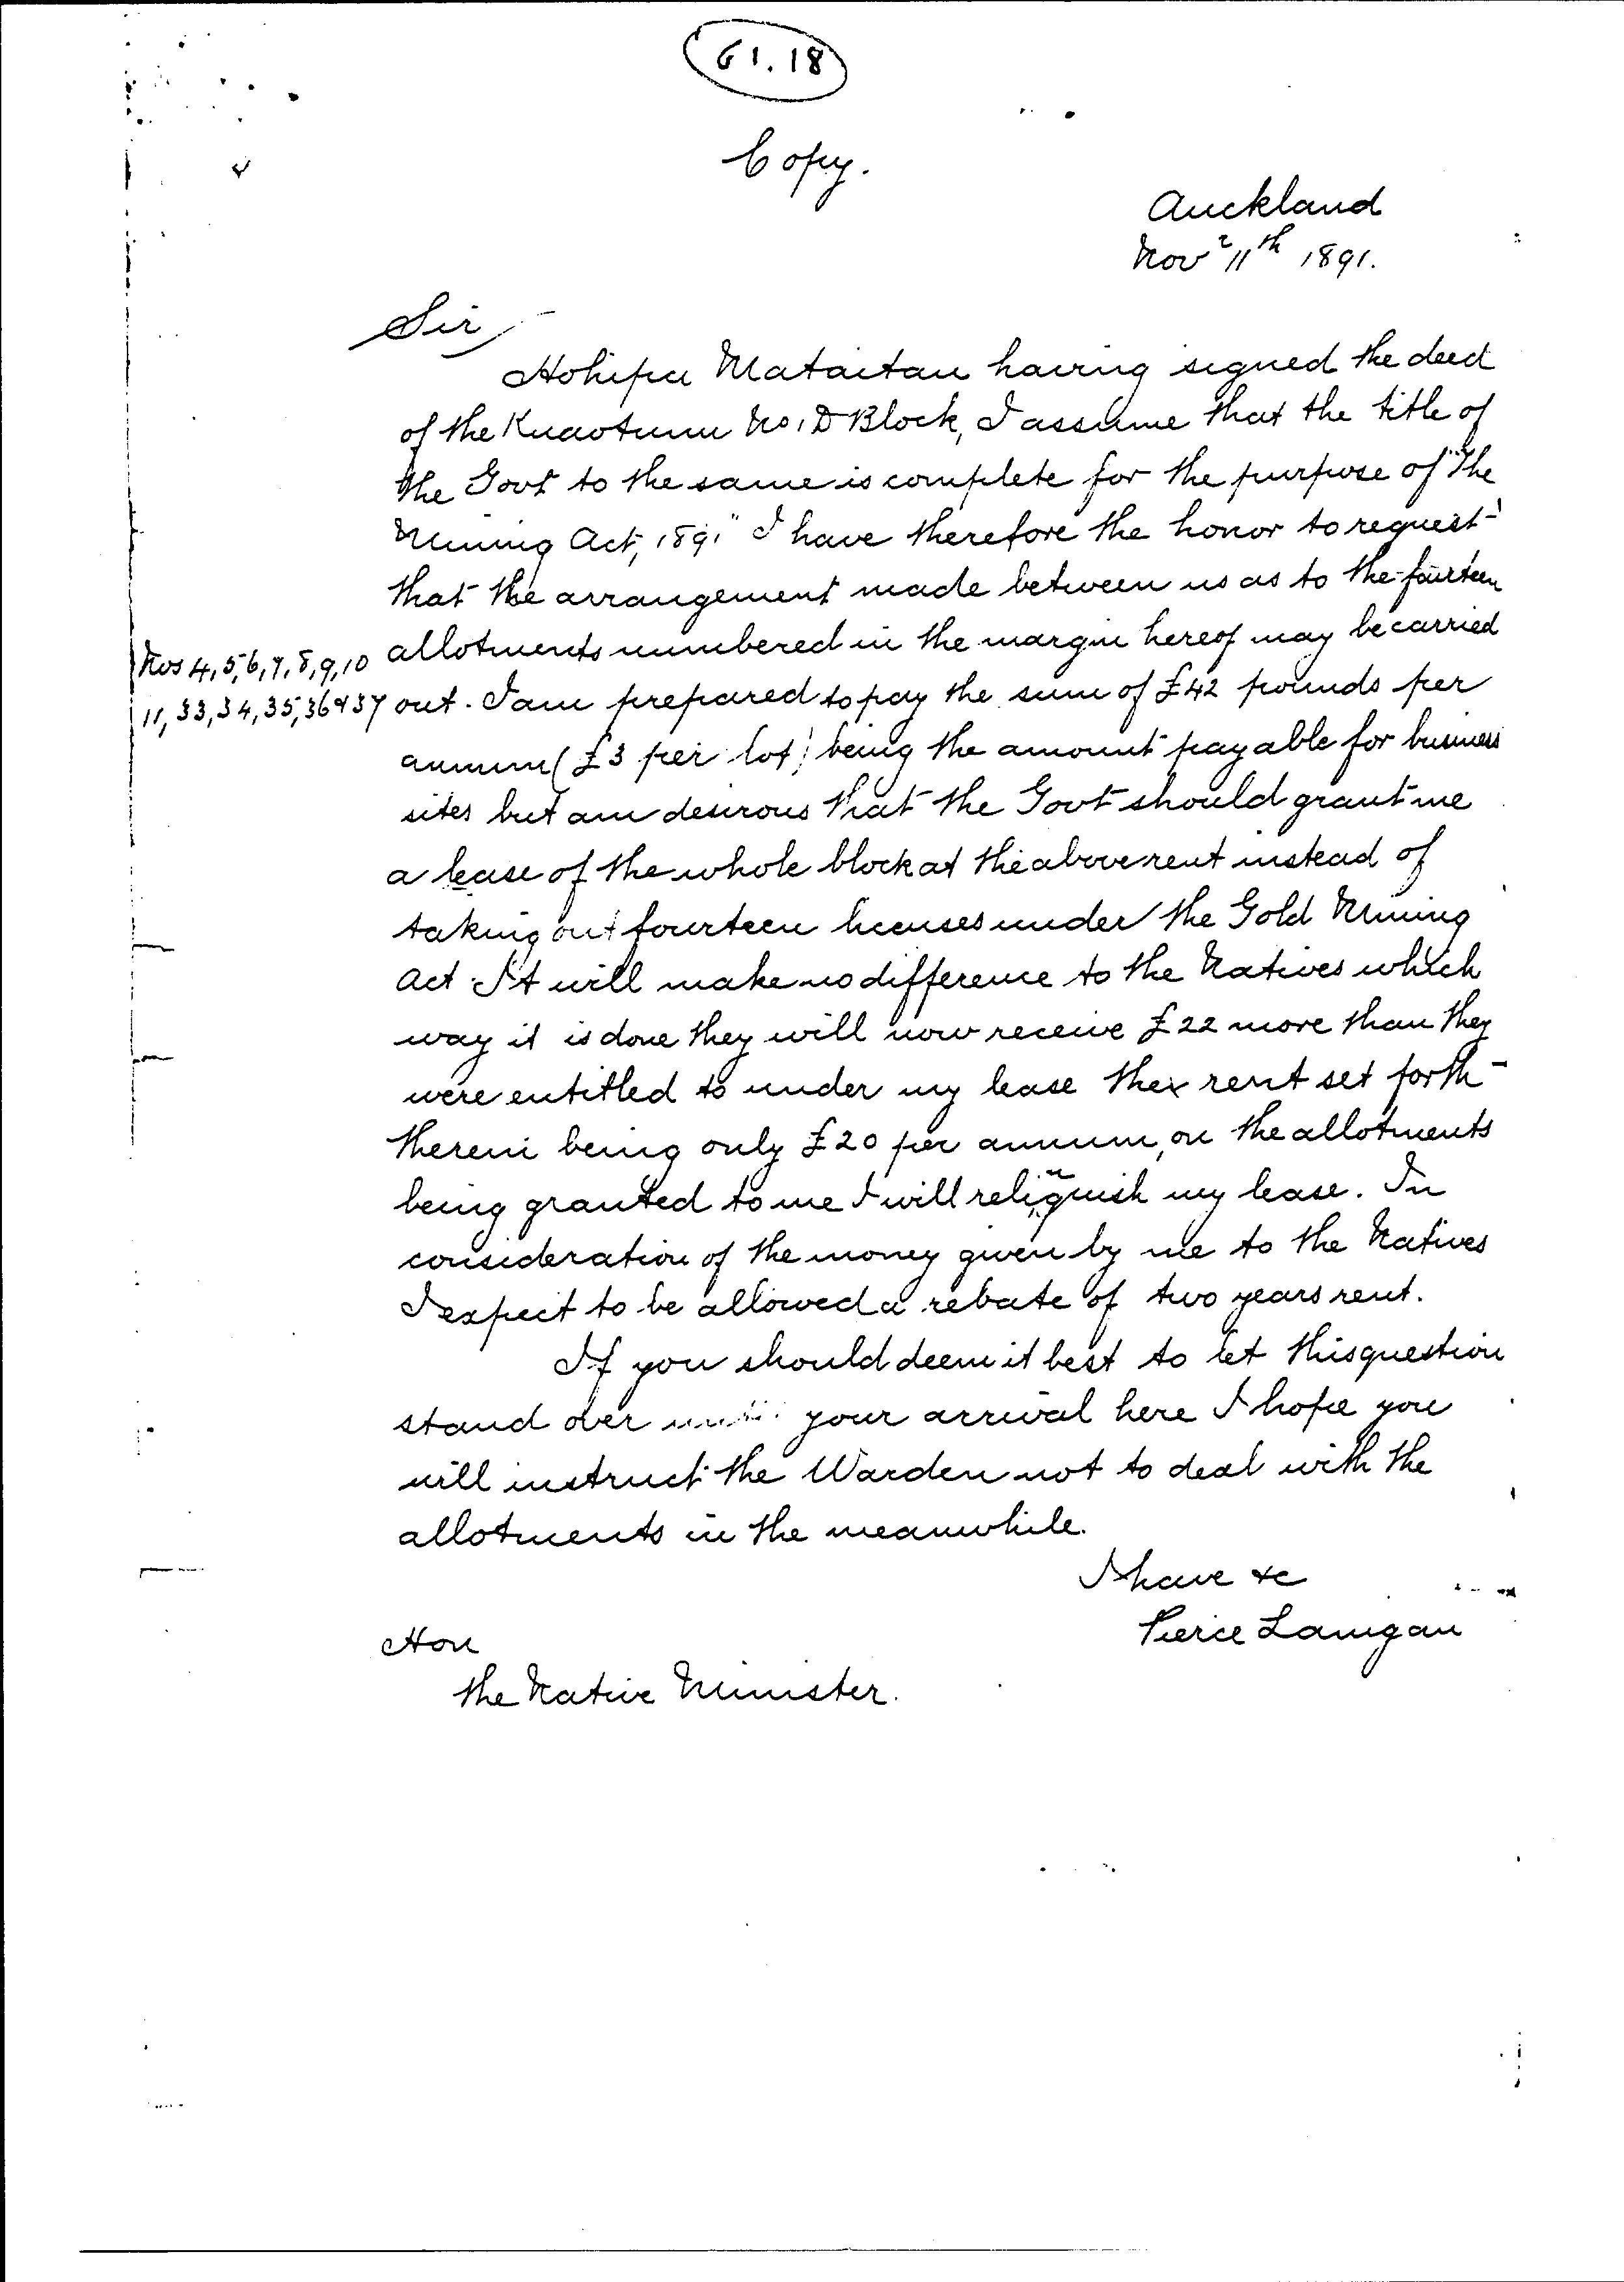 G1.18
Copy.
Auckland
Novr 11th 1891.
Sir,
Hohepa Mataitau having signed the deed
of the Kuaotunu No. 1 D Block, I assume that the title of
the Govt to the same is complete for the purpose of "The
Mining Act, 1891" I have therefore the honor to request
that the arrangement made between us as to the fourteen
allotments numbered in the margin hereof may be carried
Nos 4, 5, 6, 7, 8, 9, 10
11, 33, 34, 35, 36 & 37
out. I am prepared to pay the sum of £42 pounds per
annum (£3 per lot) being the amount payable for business
sites but am desirous that the Govt should grant me
a lease of the whole block at the above rent instead of
taking out fourteen licenses under the Gold Mining
Act. It will make no difference to the Natives which
way it is done they will now receive £22 more than they
were entitled to under my lease the rent set forth
therein being only £20 per annum, on the allotments
being granted to me I will relinquish my lease. In
consideration of the money given by me to the Natives
I expect to be allowed a rebate of two years rent.
If you should deem it best to let this question
stand over until your arrival here I hope you
will instruct the Warden not to deal with the
allotments in the meanwhile.
I have &c
Pierce Lanigan
Hon
the Native Minister.